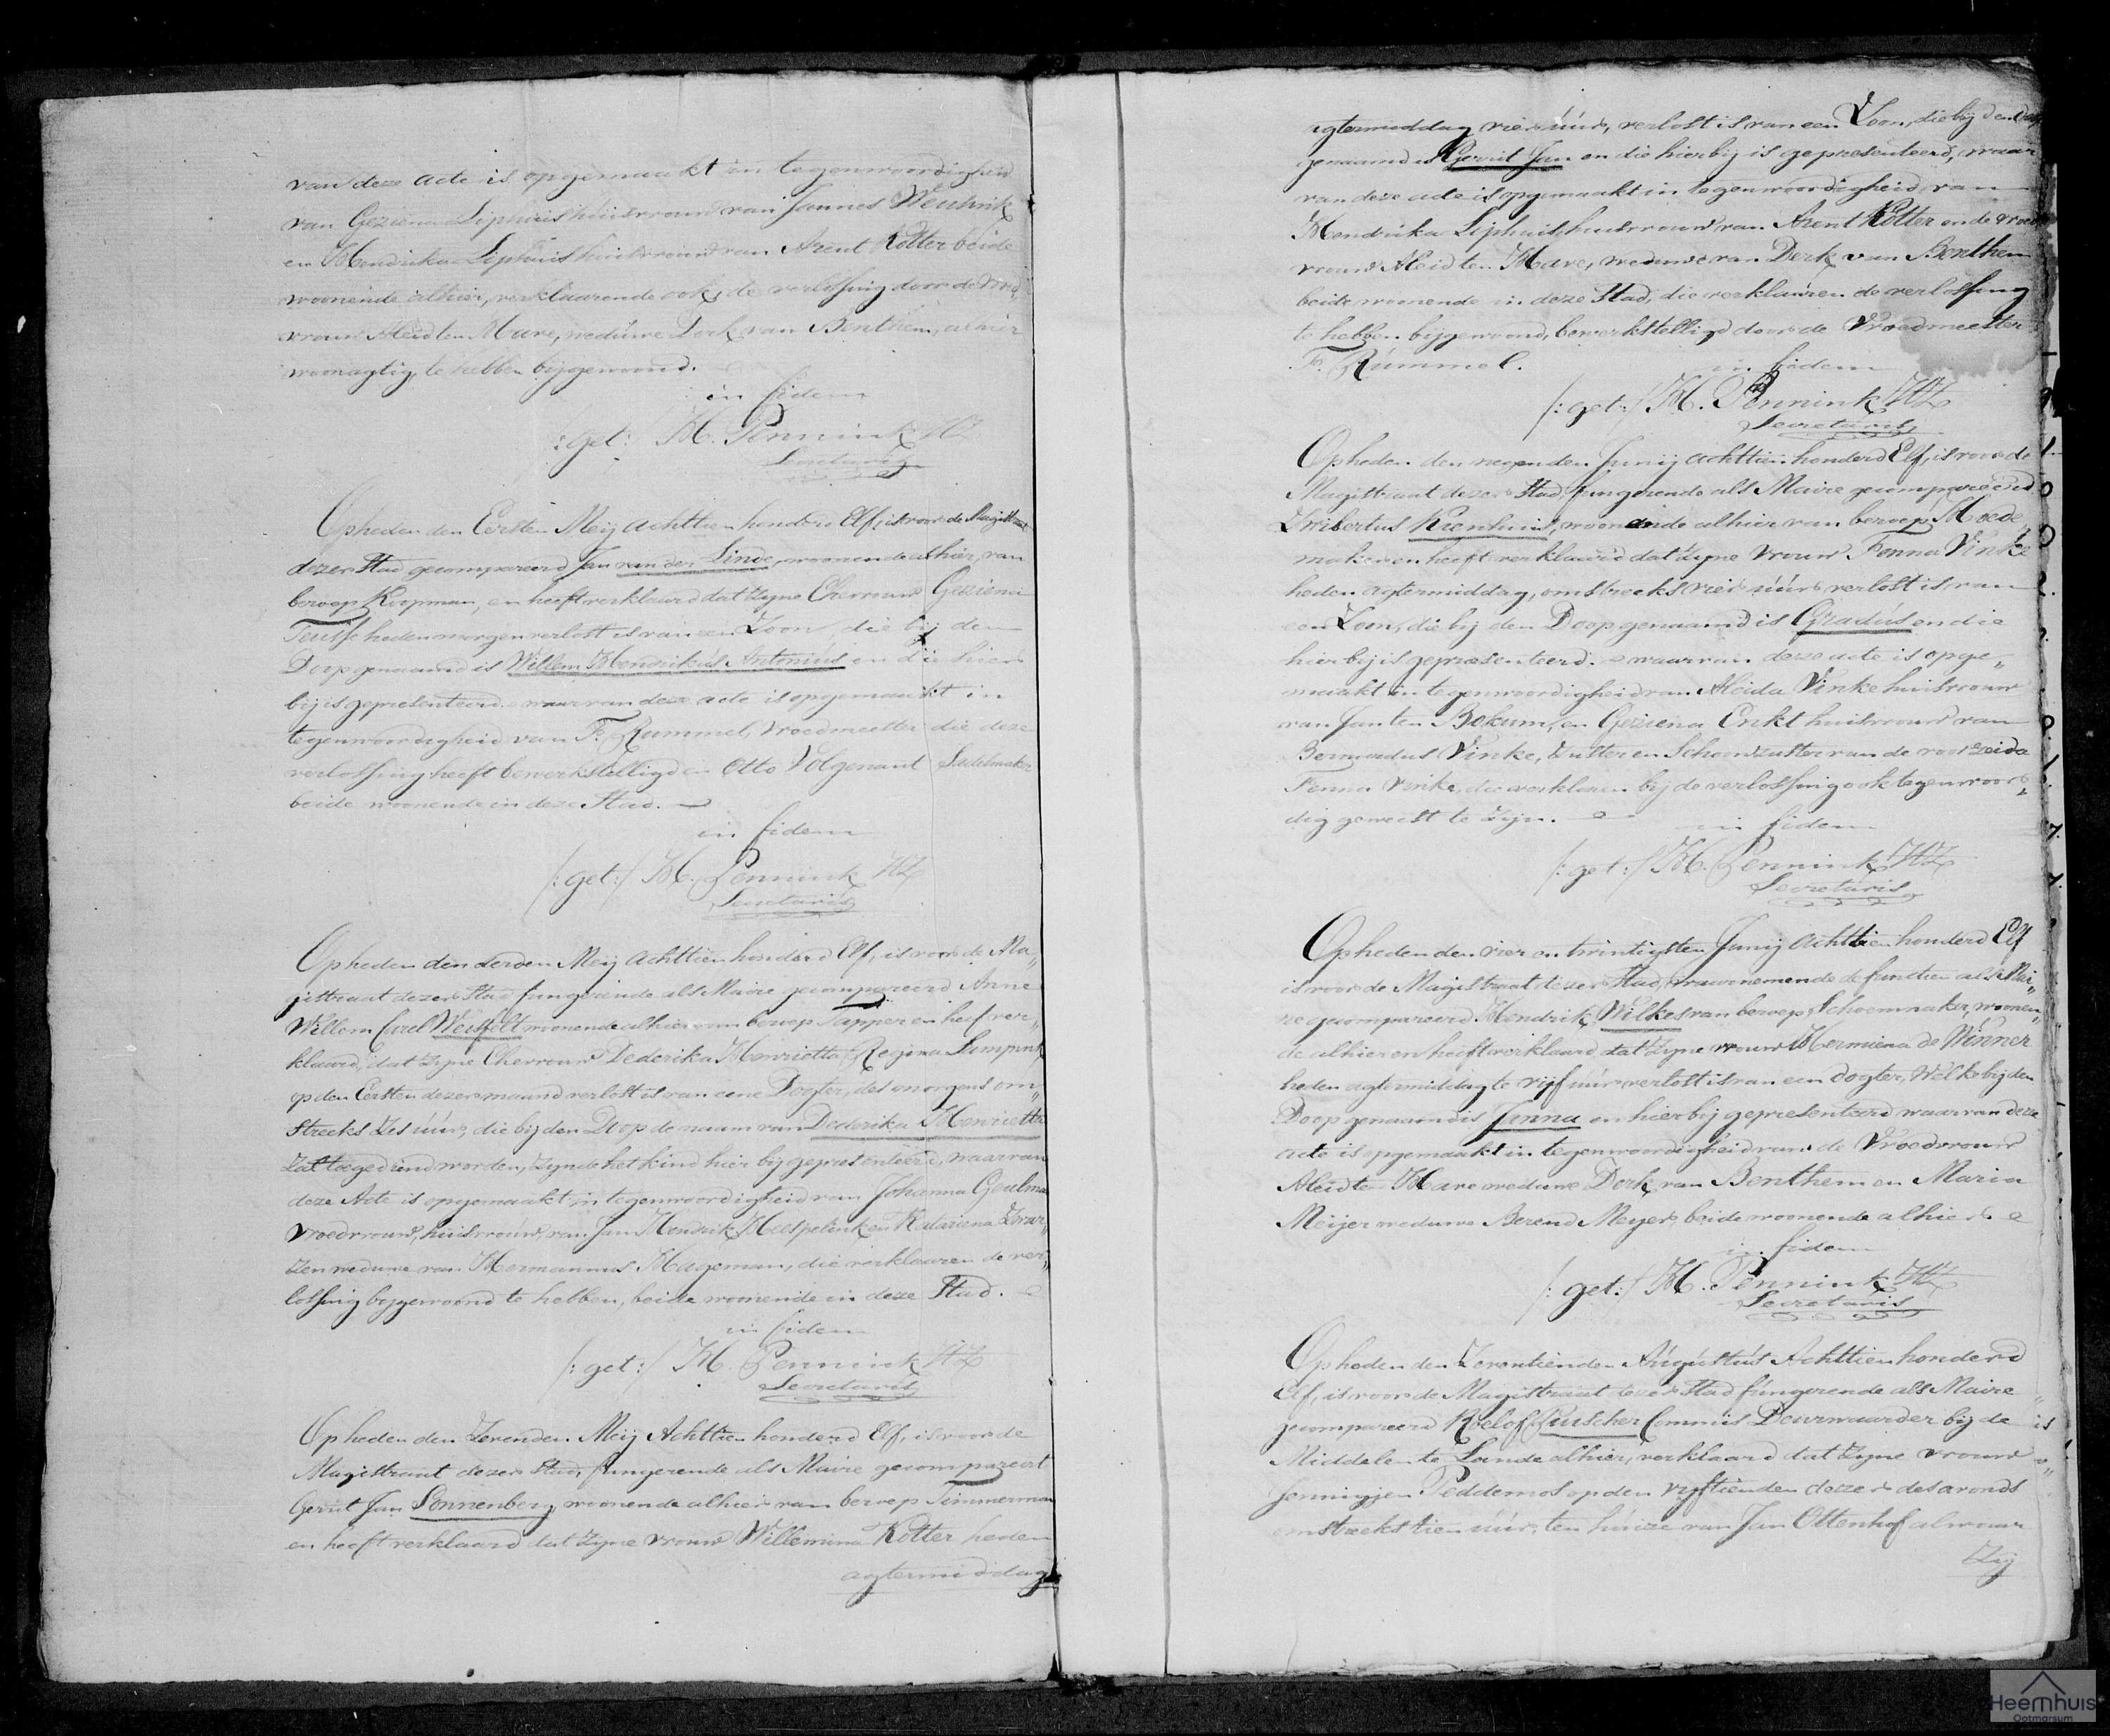 van deze acte is opgemaakt in tegenwoordigheid
van Geziena Liphuis huisvrouw van Jannes
en Hendrika Liphuis huisvrouw van Arent Kotter beide
woonende alhier, verklaarende ook, de verlossing door de Vroed„
vrouw Aleid ten Have, weduwe Derk van Benthem, alhier
woonagtig, te hebben bijgewoond.
in fidem
/:get:/ H. Pennink HZ
Secretaris
Op heden den Eersten Meij achttien honderd Elf, is voor de Magistraat
dezer Stad gecompareerd Jan van der Linde, woonende alhier, van
beroep Koopman, en heeft verklaard dat zyne Ehevrouw Geziena
heden morgen verlost is van een Zoon, die bij den
Doop genaamd is Willem Hendrikús Antoniús en die hier
bij is gepresenteerd. waarvan deze acte is opgemaakt in
tegenwoordigheid van F. Rummel, Vroedmeester die deze
verlossing heeft bewerkstelligd en Otto Volgenant Sadelmaker
beide woonende in deze Stad.
in fidem
/:get:/ H. Pennink HZ
Secretaris
Op heden den derden Meij achttien honderd Elf, is voor de Ma„
gistraat dezer Stad fungerende als Maire gecompareerd Anne
Willem Carel woonende alhier van beroep Tapper en heeft ver„
klaard, dat zyne Ehevrouw Dederika Henrietta Regina
op den Eersten dezer maand verlost is van eene Dogter, des morgens om„
streeks Zes úúr, die bij den Doop de naam van Dederika Henrietta
zal toegediend worden, zynde het kind hier bij gepresenteerd, waarvan
deze Acte is opgemaakt in tegenwoordigheid van Johanna
Vroedvrouw, huisvroúw van Jan Hendrik Heespelink en Katariena Zwar„
zen weduwe van Hermannus Hageman, die verklaaren de ver„
lossing bijgewoond te hebben, beide woonende in deze Stad.
in fidem
/:get:/ H. Pennink HZ
Secretaris
Op heden den Zevenden Meij Achttien honderd Elf, is voor de
Magistraat dezer Stad, fungerende als Maire gecompareert
Gerrit Jan Sonnenberg woonende alhier van beroep Timmerman
en heeft verklaard dat zyne Vrouw Willemina Kotter heden
agtermiddag
agtermiddag vier úúr, verlost is van een Zoon, die bij den Doop
genaamd is Gerrit Jan en die hierbij is gepresenteerd, waar
van deze acte is opgemaakt in tegenwoordigheid van
Hendrika Liphuis, huisvrouw van Arent Kotter en de Vroed
vrouw Aleid ten Have, weduwe van Derk van Benthem
beide woonende in deze Stad, die verklaaren de verlossing
te hebben bijgewoond, bewerkstelligd door de Vroedmeester
F. Rúmmel.
in fidem
/:get:/ H. Pennink HZ
Secretaris
Op heden den negenden Junij achttien honderd Elf, is voor de
Magistraat dezer Stad, fungerende als Maire gecompareerd
Zwibertus Kienhuis, woonende alhier van beroep Hoede
maker en heeft verklaard dat zyne Vrouw Fenna Vinke
heden agtermiddag, omstreeks vier úúr verlost is van
een Zoon, die bij den Doop genaamd is Gradús en die
hier bij is gepresenteerd. waarvan deze acte is opge„
maakt in tegenwoordigheid van Aleida Vinke huisvrouw
van Jan ten Bokum, en Geziena Enkt huisvrouw van
Bernardus Vinke, Zuster en Schoonzuster van de voorzeide
Fenna Vinke, die verklaren bij de verlossing ook tegenwoor„
dig geweest te zijn.
in fidem
/:get:/ H. Pennink HZ
Secretaris
Op heden den vier en twintigsten Junij Achttien honderd Elf
is voor de Magistraat dezer Stad, waarnemende de functien als Mai„
re gecompareerd Hendrik Wilkes van beroep Schoenmaker, woonen„
de alhier en heeft verklaard, dat zyne vrouw Hermiena de Winner
heden agtermiddag te vijf úúr verlost is van een dogter, Welke bij den
Doop genaamd is Janna en hierbij gepresenteerd waarvan deze
acte is opgemaakt in tegenwoordigheid van de Vroedvrouw
Aleid ten Have weduwe Derk van Benthem en Maria
Meijer weduwe Berend Meyer, beide woonende alhier.
in fidem
/:get:/ H. Pennink HZ
Secretaris
Op heden den Zeventienden Aúgústús Achttien honderd
Elf, is voor de Magistraat dezer Stad fúngerende als Maire
gecompareerd Roelof Commis Deurwaarder bij de
Middelen te Lande alhier, verklaard dat zyne vrouw
Jennigjen Peddemos op den vyftienden dezer des avonds
omstreeks tien úúr, ten húize van Jan Ottenhof alwaar
Zij
Heemhuis
Ootmarsum